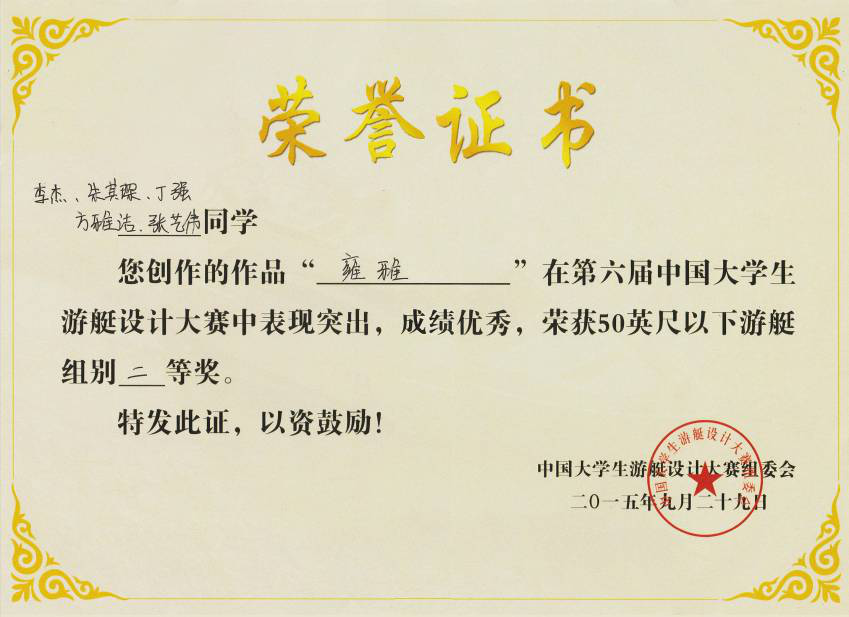 荣誉证书
李杰、朱其琛、丁强
方雅洁、张艺伟同学
您创作的作品“雍雅”在第六届中国大学生
游艇设计大赛中表现突出，成绩优秀，荣获50英尺以下游艇
组别二等奖。
特发此证，以资鼓励！
中国大学生游艇设计大赛组委会
二〇一五年九月二十九日
中国大学生游艇设计大赛组委会